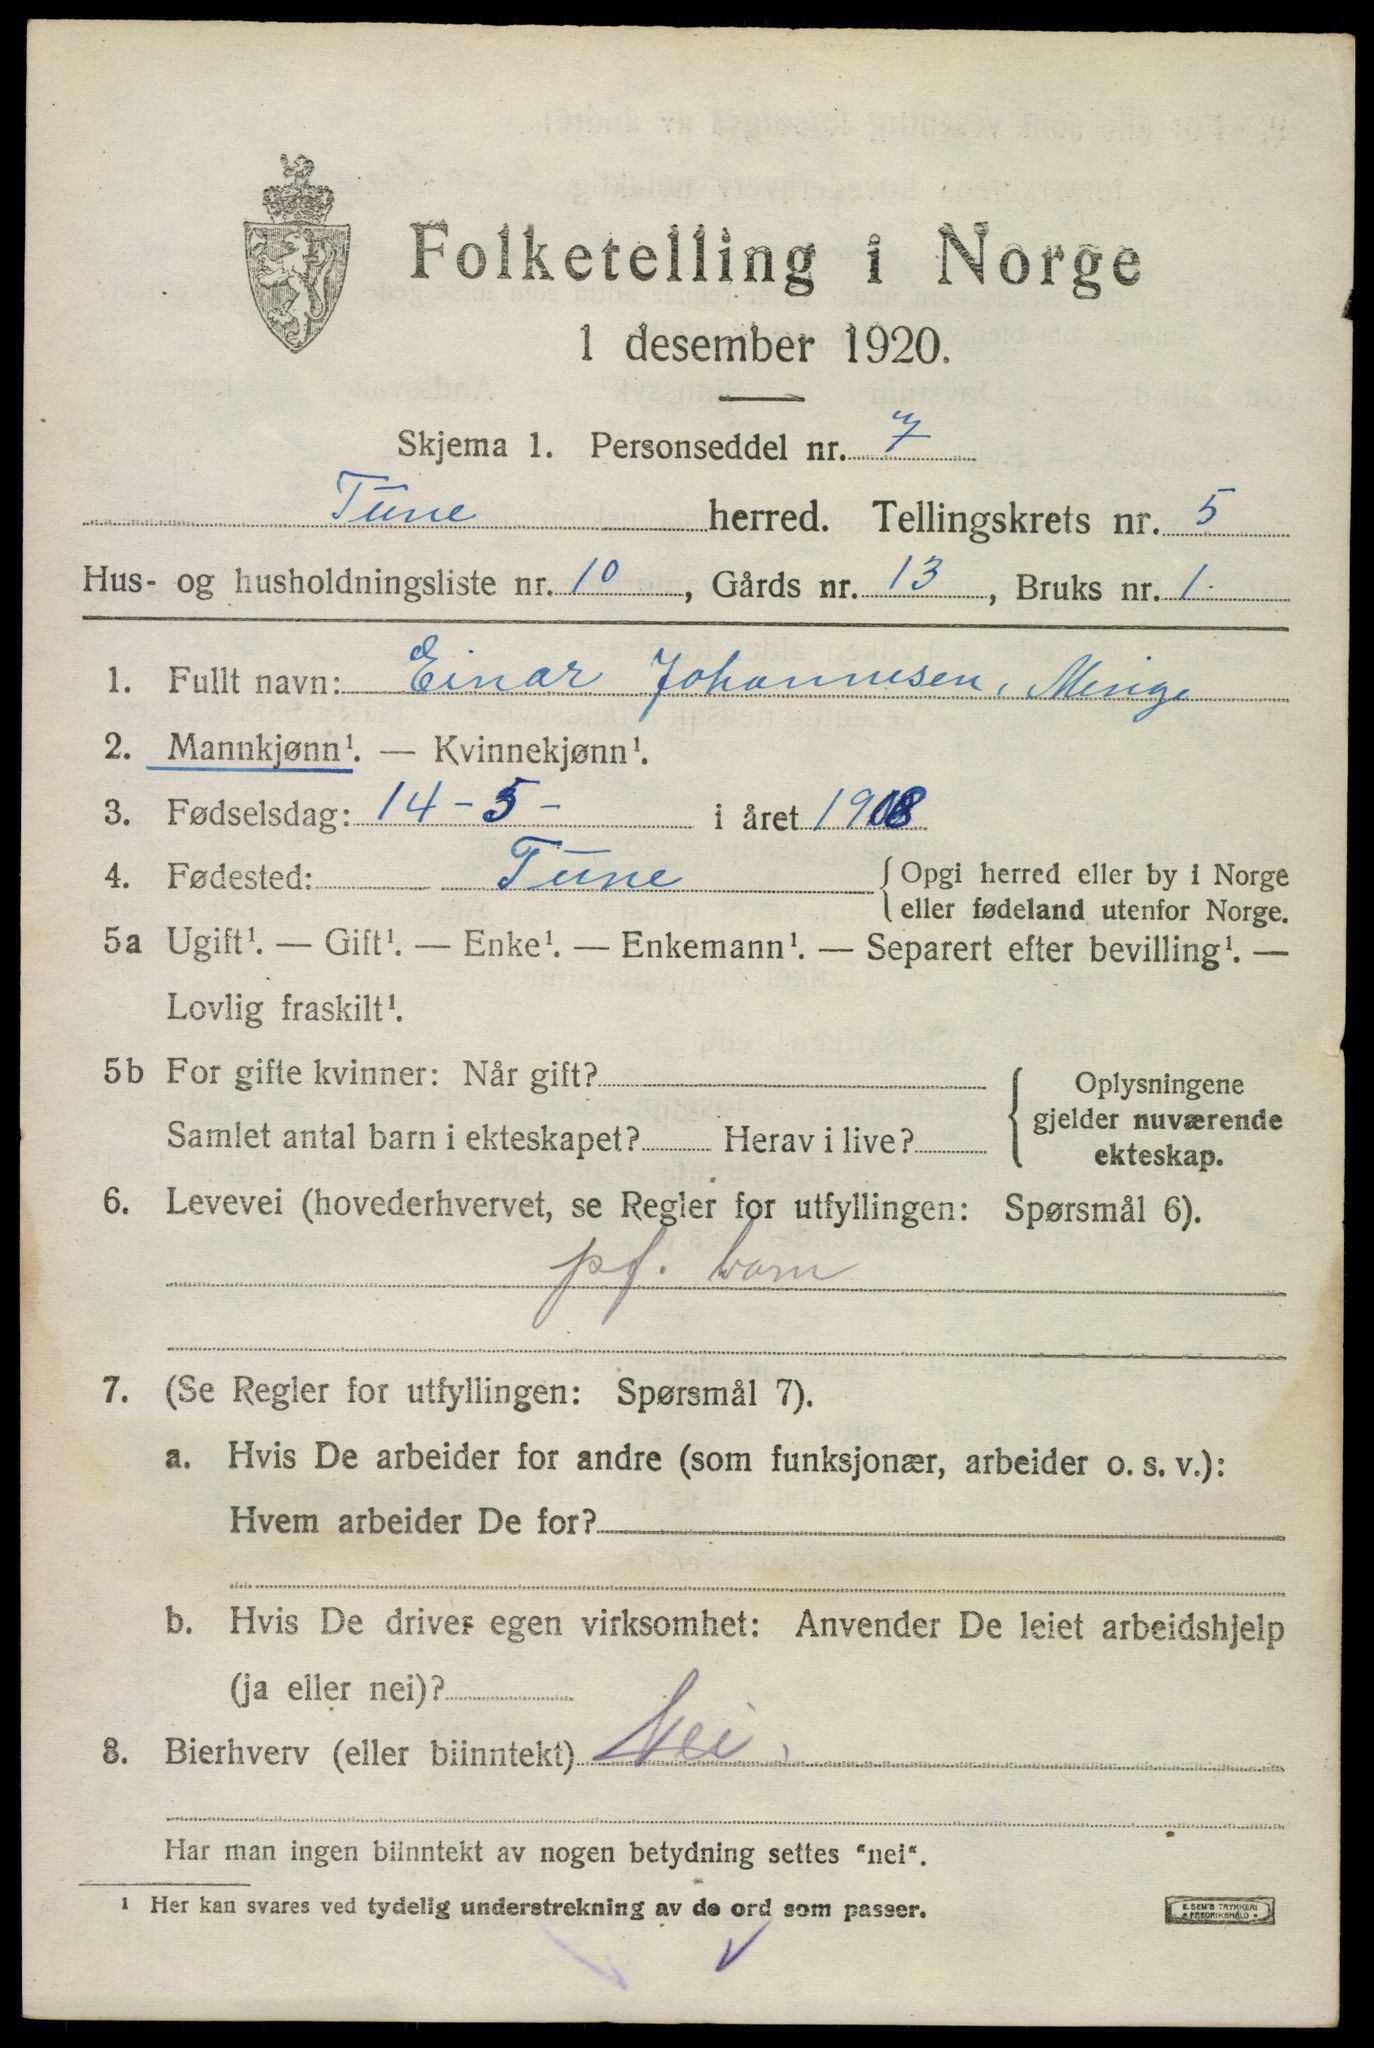 Folketelling i Norge
1 desember 1920.
Skjema 1. Personseddel nr. 7
Tune herred. Tellingskrets nr. 5
Hus- og husholdningsliste nr. 10, Gårds nr. 13, Bruks nr. 1.
1. Fullt navn: Einar Johannesen, Minge
2. Mannkjønn¹. — Kvinnekjønn¹.
3. Fødselsdag: 14 - 5 - i året 1908
4. Fødested: Tune { Opgi herred eller by i Norge
eller fødeland utenfor Norge.
5a Ugift¹. — Gift¹. — Enke¹. — Enkemann¹. — Separert efter bevilling¹. —
Lovlig fraskilt¹.
5b For gifte kvinner: Når gift? { Oplysningene
gjelder nuværende
Samlet antal barn i ekteskapet? Herav i live? ekteskap.
6. Levevei (hovederhvervet, se Regler for utfyllingen: Spørsmål 6).
pf. barn
7. (Se Regler for utfyllingen: Spørsmål 7).
a. Hvis De arbeider for andre (som funksjonær, arbeider o. s. v.):
Hvem arbeider De for?
b. Hvis De driver egen virksomhet: Anvender De leiet arbeidshjelp
(ja eller nei)?
8. Bierhverv (eller biinntekt) Nei,
Har man ingen biinntekt av nogen betydning settes "nei".
1 Her kan svares ved tydelig understrekning av de ord som passer.
E. SEM'S TRYKKERI
FREDRIKSHALD